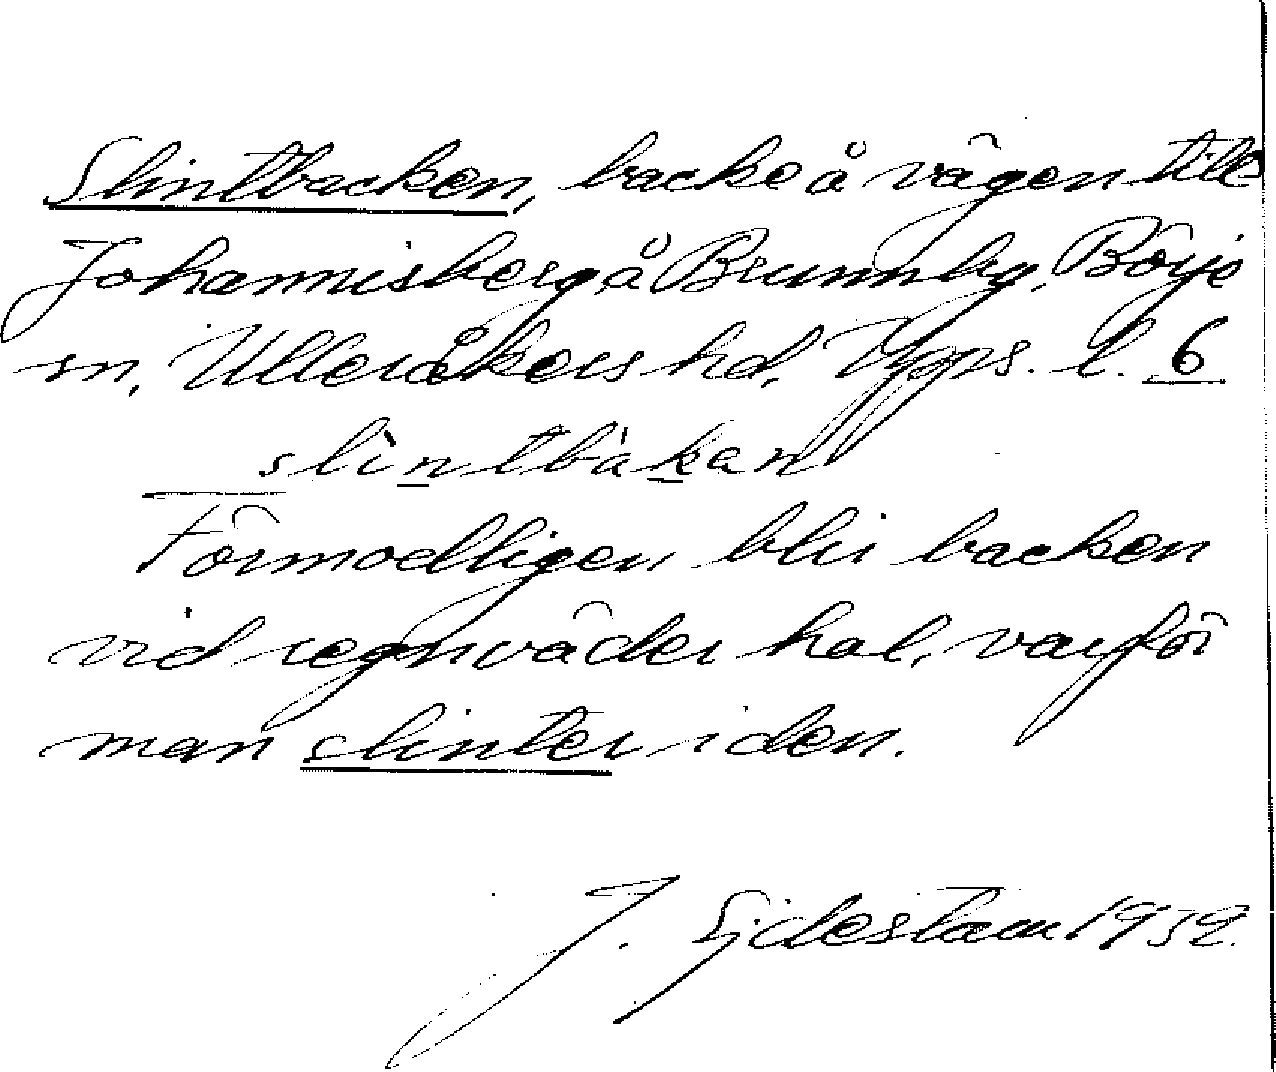 Slintbacken, backe å vägen till
Johannisberg å Brunnby, Börje
sn, Ulleråkers hd, Upps. l. 6
slìntbákan
Förmodligen blir backen
vid regnväder hal, varför
man slinter i den.
J. Sjdestam 1932.